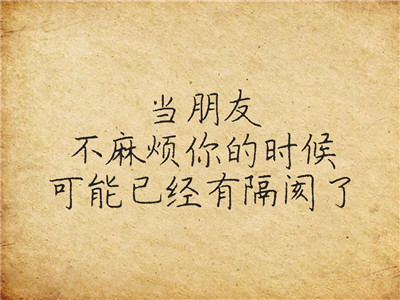 当朋友
不麻烦你的时候
可能已经有隔阂了